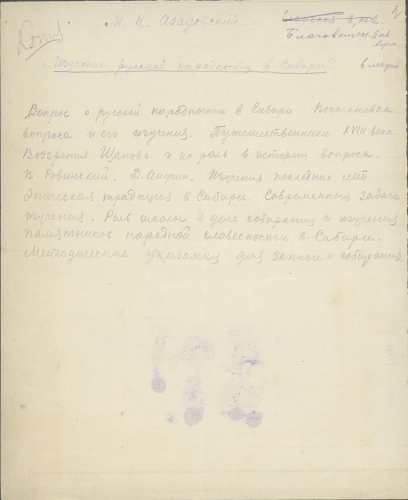 Копия
М. К. Азадовский.
"Изучение русской народности в Сибири"
Вопрос о русской народности в Сибири. Постановка
вопроса и его изучения. Путешественники XVIII века.
Воззрения Щапова и их роль в истории вопроса.
П. Ровинский. Д. Анучин. Изучения последних лет.
Эпическая традиция в Сибири. Современные задачи
изучения. Роль школы в деле собирания и изучения
памятников народной словесности в Сибири.
Методические указания для записи и собирания.